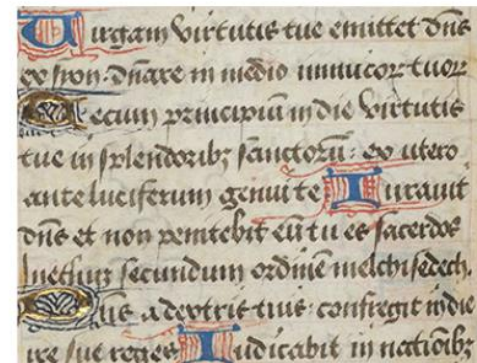 Uirgam virtutis tue emittet dn̄s
ex syon· dn̄are in medio inimicoꝝ tuoꝝ
Tecum principiū in die virtutis
tue in splendoribꝫ sanctorū· ex utero
ante luciferum genui te Iurauit
dn̄s et non penitebit eū tu es sacerdos
ineternū secundum ordinē melchisedech.
Dn̄s a dextris tuis· confregit in die
ire sue reges Iudicabit in nationibꝫ